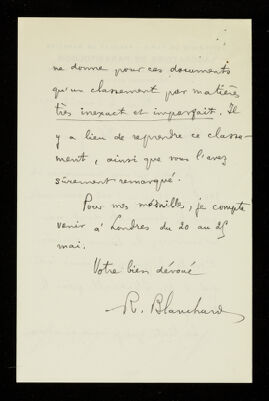 ne donne pour ces documents
qu'un classement par matières
très inexact et imparfait. Il
y a lieu de reprendre ce classe-
ment, ainsi que vous l'avez
sûrement remarqué.
Pour mes , je compte
venir à Londres du 20 au 25
mai.
Votre bien dévoué
R. Blanchard